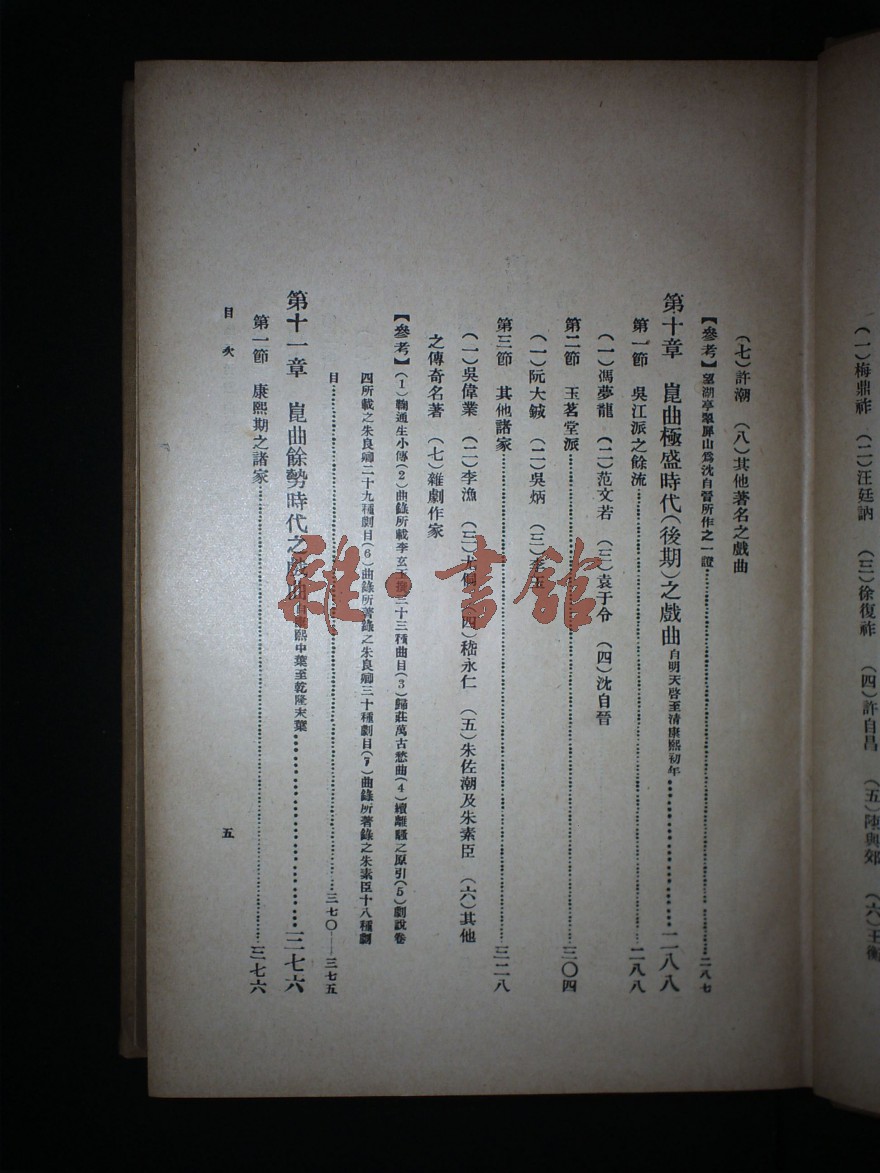 （一）梅鼎祚　（二）汪廷訥　（三）徐復祚　（四）許自昌　（五）陳與郊　（六）王衡
（七）許潮　（八）其他著名之戲曲
【參考】望湖亭翠屏山爲沈自晉所作之一證……二八七
第十章　崑曲極盛時代（後期）之戲曲　自明天啓至清康熙初年……二八八
第一節　吳江派之餘流……二八八
（一）馮夢龍　（二）范文若　（三）袁于令　（四）沈自晉
第二節　玉茗堂派……三〇四
（一）阮大鋮　（二）吳炳　（三）李玉
第三節　其他諸家……三二八
（一）吳偉業　（二）李漁　（三）尤侗　（四）嵇永仁　（五）朱佐潮及朱素臣　（六）其他
之傳奇名著　（七）雜劇作家
【參考】（1）鞠通生小傳（2）曲錄所載李玄玉撰三十三種曲目（3）歸莊萬古愁曲（4）續離騷之原引（5）劇說卷
四所載之朱良卿二十九種劇目（6）曲錄所著錄之朱良卿三十種劇目（7）曲錄所著錄之朱素臣十八種劇
目……三七〇——三七五
第十一章　崑曲餘勢時代之戲曲　自康熙中葉至乾隆末葉……三七六
第一節　康熙期之諸家……三七六
目次　五
雜·書館